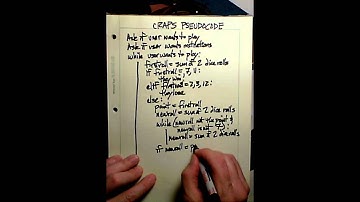 CRAPS PSEUDOCODE
Ask if user wants to play
Ask if user wants instructions
while user wants to play:
firstroll = sum of 2 dice rolls
if firstroll = 7, 11:
they win
elif firstroll = 2, 3, 12:
they lose
else:
point = firstroll
newroll = sum of 2 dice rolls
while (newroll not the point &
newroll is not 7):
newroll = sum of 2 dice rolls
if newroll = p